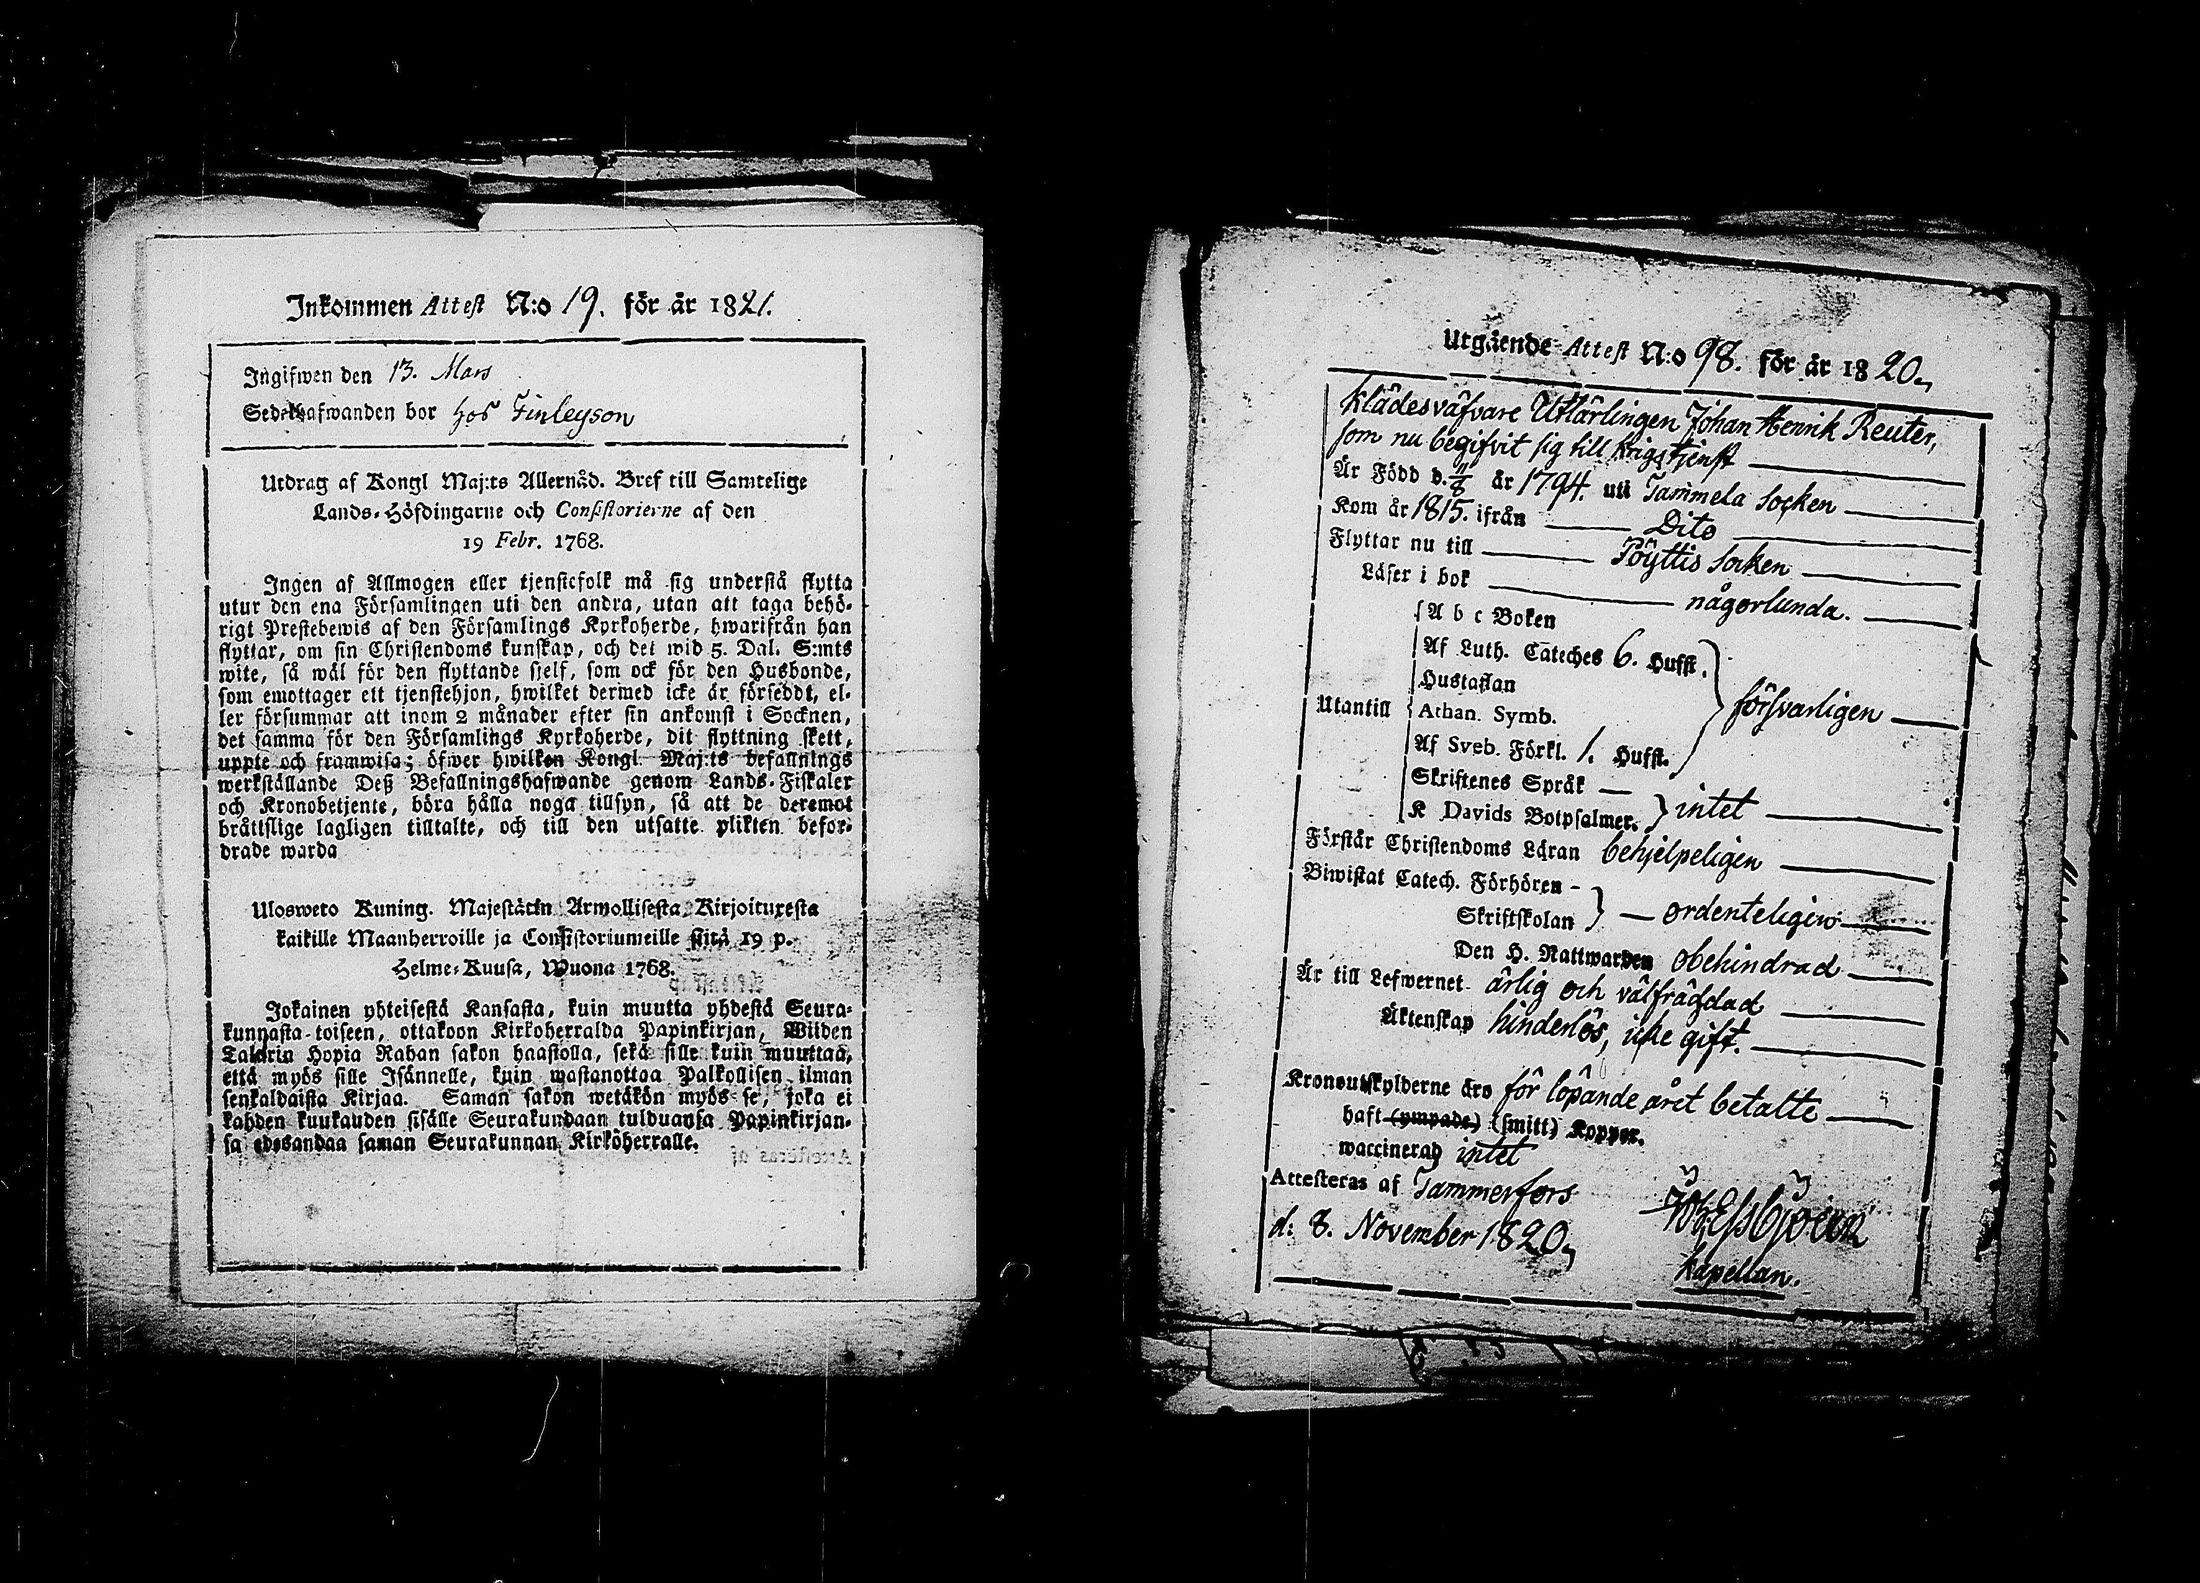 Inkommen Attest N:o 19. för år 1821.
Ingifwen den 13. Mars
Sedelhafwanden bor hos Finleyson
Utdrag af Kongl Maj:ts Allernåd. Bref till Samtelige
Lands-Höfdingarne och Consistorierne af den
19 Febr. 1768.
Ingen af Allmogen eller tjenstefolk må sig understå flytta
utur den ena Församlingen uti den andra, utan att taga behö-
rigt Prestebewis af den Församlings Kyrkoherde, hwarifrån han
flyttar, om sin Christendoms kunskap, och det wid 5. Dal. S:mts
wite, så wäl för den flyttande sielf, som ock för den Husbonde,
som emottager ett tjenstehjon, hwilket dermed icke är försedt, el-
ler försummar att inom 2 månader efter sin ankomst i Socknen,
det samma för den Församlings Kyrkoherde, dit flyttning skett,
uppte och framwisa; öfwer hwilken Kongl. Maj:ts befallnings
werkställande Deß Befallningshafwande genom Lands-Fiskaler
och Kronobetjente, böra hålla noga tillsyn, så att de deremot
bråttslige lagligen tilltalte, och till den utsatte plikten befor-
drade warda
Uloswето Kuning. Majestätin Armollisesta Kirjoituxesta
kaikille Maanherroille ja Consistoriumeille siitä 19 p.
Helme-Kuusa, Wuona 1768.
Jokainen yhteisestä Kansasta, kuin muutta yhdestä Seura-
kunnasta toiseen, ottakoon Kirkoherralda Papinkirjan, Wiiden
Talarin Hopia Rahan sakon haastolla, sekä sille kuin muuttaa,
että myös sille Isännelle, kuin wastanottaa Palkollisen ilman
senkaldaista Kirjaa. Saman sakon wetäkön myös se, joka ei
kahden kuukauden sisälle Seurakundaan tulduansa Papinkirjan-
sa edesandaa saman Seurakunnan Kirköherralle.
Utgående Attest N:o 98. för år 1820.
Klädesväfvare Utlärlingen Johan Henrik Reuter,
som nu begifvit sig till krigstjenst
Är Född d. 11/8 år 1794. uti Tammela Socken
Kom år 1815. ifrån Dito
Flyttar nu till Pöyttis Socken
Läser i bok någorlunda.
A b c Boken
Af Luth. Cateches 6. Hufst.
Hustaflan
Utantill Athan. Symb. försvarligen
Af Sveb. Förkl. 1. Hufst.
Skriftenes Språk
K Davids Botpsalmer. intet
Förstår Christendoms Läran behjelpeligen
Biwistat Catech. Förhören
Skriftskolan ordenteligen
Den H. Nattwarden obehindrad
Är till Lefwernet ärlig och välfrägdad
Äktenskap hinderlös, icke gift.
Kronoutskylderne äro för löpande året betalte
haft (ympade) (smitt) Koppor.
waccinerad intet
Attesteras af Tammerfors
d: 8. November 1820
Kapellan.